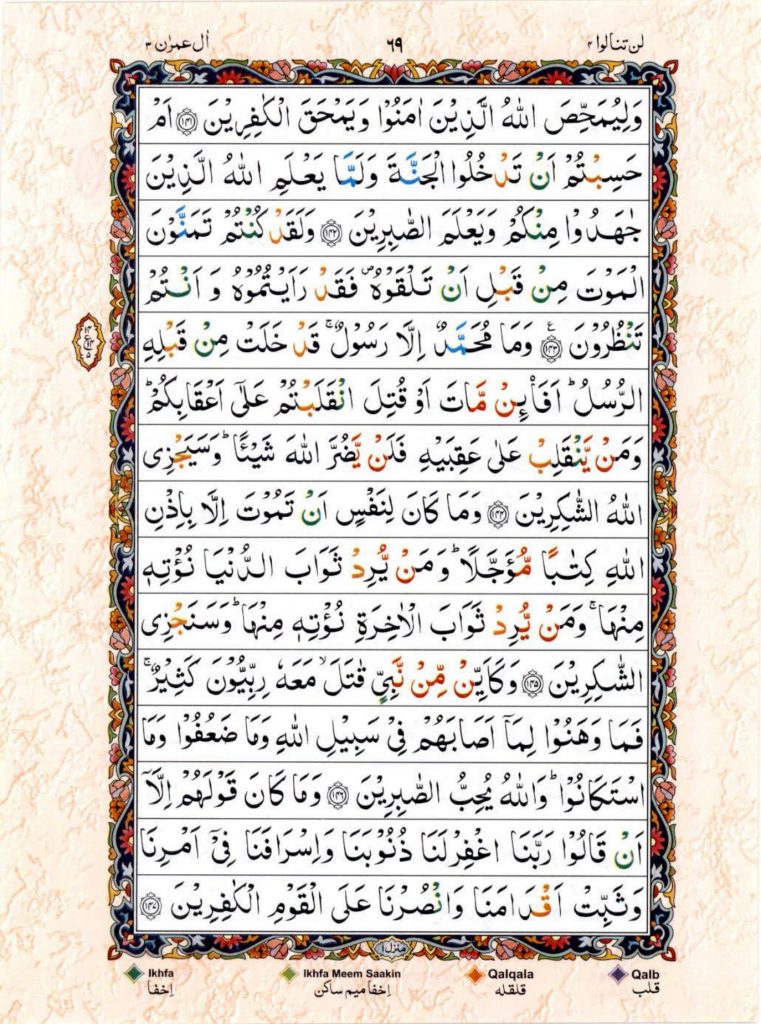 لن تنالوا ۴ ۶۹ اٰل عمرٰن ۳
وَلِيُمَحِّصَ اللّٰهُ الَّذِيْنَ اٰمَنُوْا وَيَمْحَقَ الْكٰفِرِيْنَ ﴿۱۴۱﴾ اَمْ
حَسِبْتُمْ اَنْ تَدْخُلُوا الْجَنَّةَ وَلَمَّا يَعْلَمِ اللّٰهُ الَّذِيْنَ
جٰهَدُوْا مِنْكُمْ وَيَعْلَمَ الصّٰبِرِيْنَ ﴿۱۴۲﴾ وَلَقَدْ كُنْتُمْ تَمَنَّوْنَ
الْمَوْتَ مِنْ قَبْلِ اَنْ تَلْقَوْهُ ۪ فَقَدْ رَاَيْتُمُوْهُ وَ اَنْتُمْ
تَنْظُرُوْنَ ﴿۱۴۳﴾ ع وَمَا مُحَمَّدٌ اِلَّا رَسُوْلٌ ۚ قَدْ خَلَتْ مِنْ قَبْلِهِ
الرُّسُلُ ؕ اَفَا۠ئِنْ مَّاتَ اَوْ قُتِلَ انْقَلَبْتُمْ عَلٰٓى اَعْقَابِكُمْ ؕ
وَمَنْ يَّنْقَلِبْ عَلٰى عَقِبَيْهِ فَلَنْ يَّضُرَّ اللّٰهَ شَيْـًٔا ؕ وَسَيَجْزِى
اللّٰهُ الشّٰكِرِيْنَ ﴿۱۴۴﴾ وَمَا كَانَ لِنَفْسٍ اَنْ تَمُوْتَ اِلَّا بِاِذْنِ
اللّٰهِ كِتٰبًا مُّؤَجَّلًا ؕ وَمَنْ يُّرِدْ ثَوَابَ الدُّنْيَا نُؤْتِهٖ
مِنْهَا ۚ وَمَنْ يُّرِدْ ثَوَابَ الْاٰخِرَةِ نُؤْتِهٖ مِنْهَا ؕ وَسَنَجْزِى
الشّٰكِرِيْنَ ﴿۱۴۵﴾ وَكَاَيِّنْ مِّنْ نَّبِيٍّ قٰتَلَ ۙ مَعَهٗ رِبِّيُّوْنَ كَثِيْرٌ ۚ
فَمَا وَهَنُوْا لِمَاۤ اَصَابَهُمْ فِيْ سَبِيْلِ اللّٰهِ وَمَا ضَعُفُوْا وَمَا
اسْتَكَانُوْا ؕ وَاللّٰهُ يُحِبُّ الصّٰبِرِيْنَ ﴿۱۴۶﴾ وَمَا كَانَ قَوْلَهُمْ اِلَّاۤ
اَنْ قَالُوْا رَبَّنَا اغْفِرْ لَنَا ذُنُوْبَنَا وَاِسْرَافَنَا فِيْۤ اَمْرِنَا
وَثَبِّتْ اَقْدَامَنَا وَانْصُرْنَا عَلَى الْقَوْمِ الْكٰفِرِيْنَ ﴿۱۴۷﴾
منزل ۱
Ikhfa Ikhfa Meem Saakin Qalqala Qalb
اِخفا اِخفا میم ساکن قلقله قلب